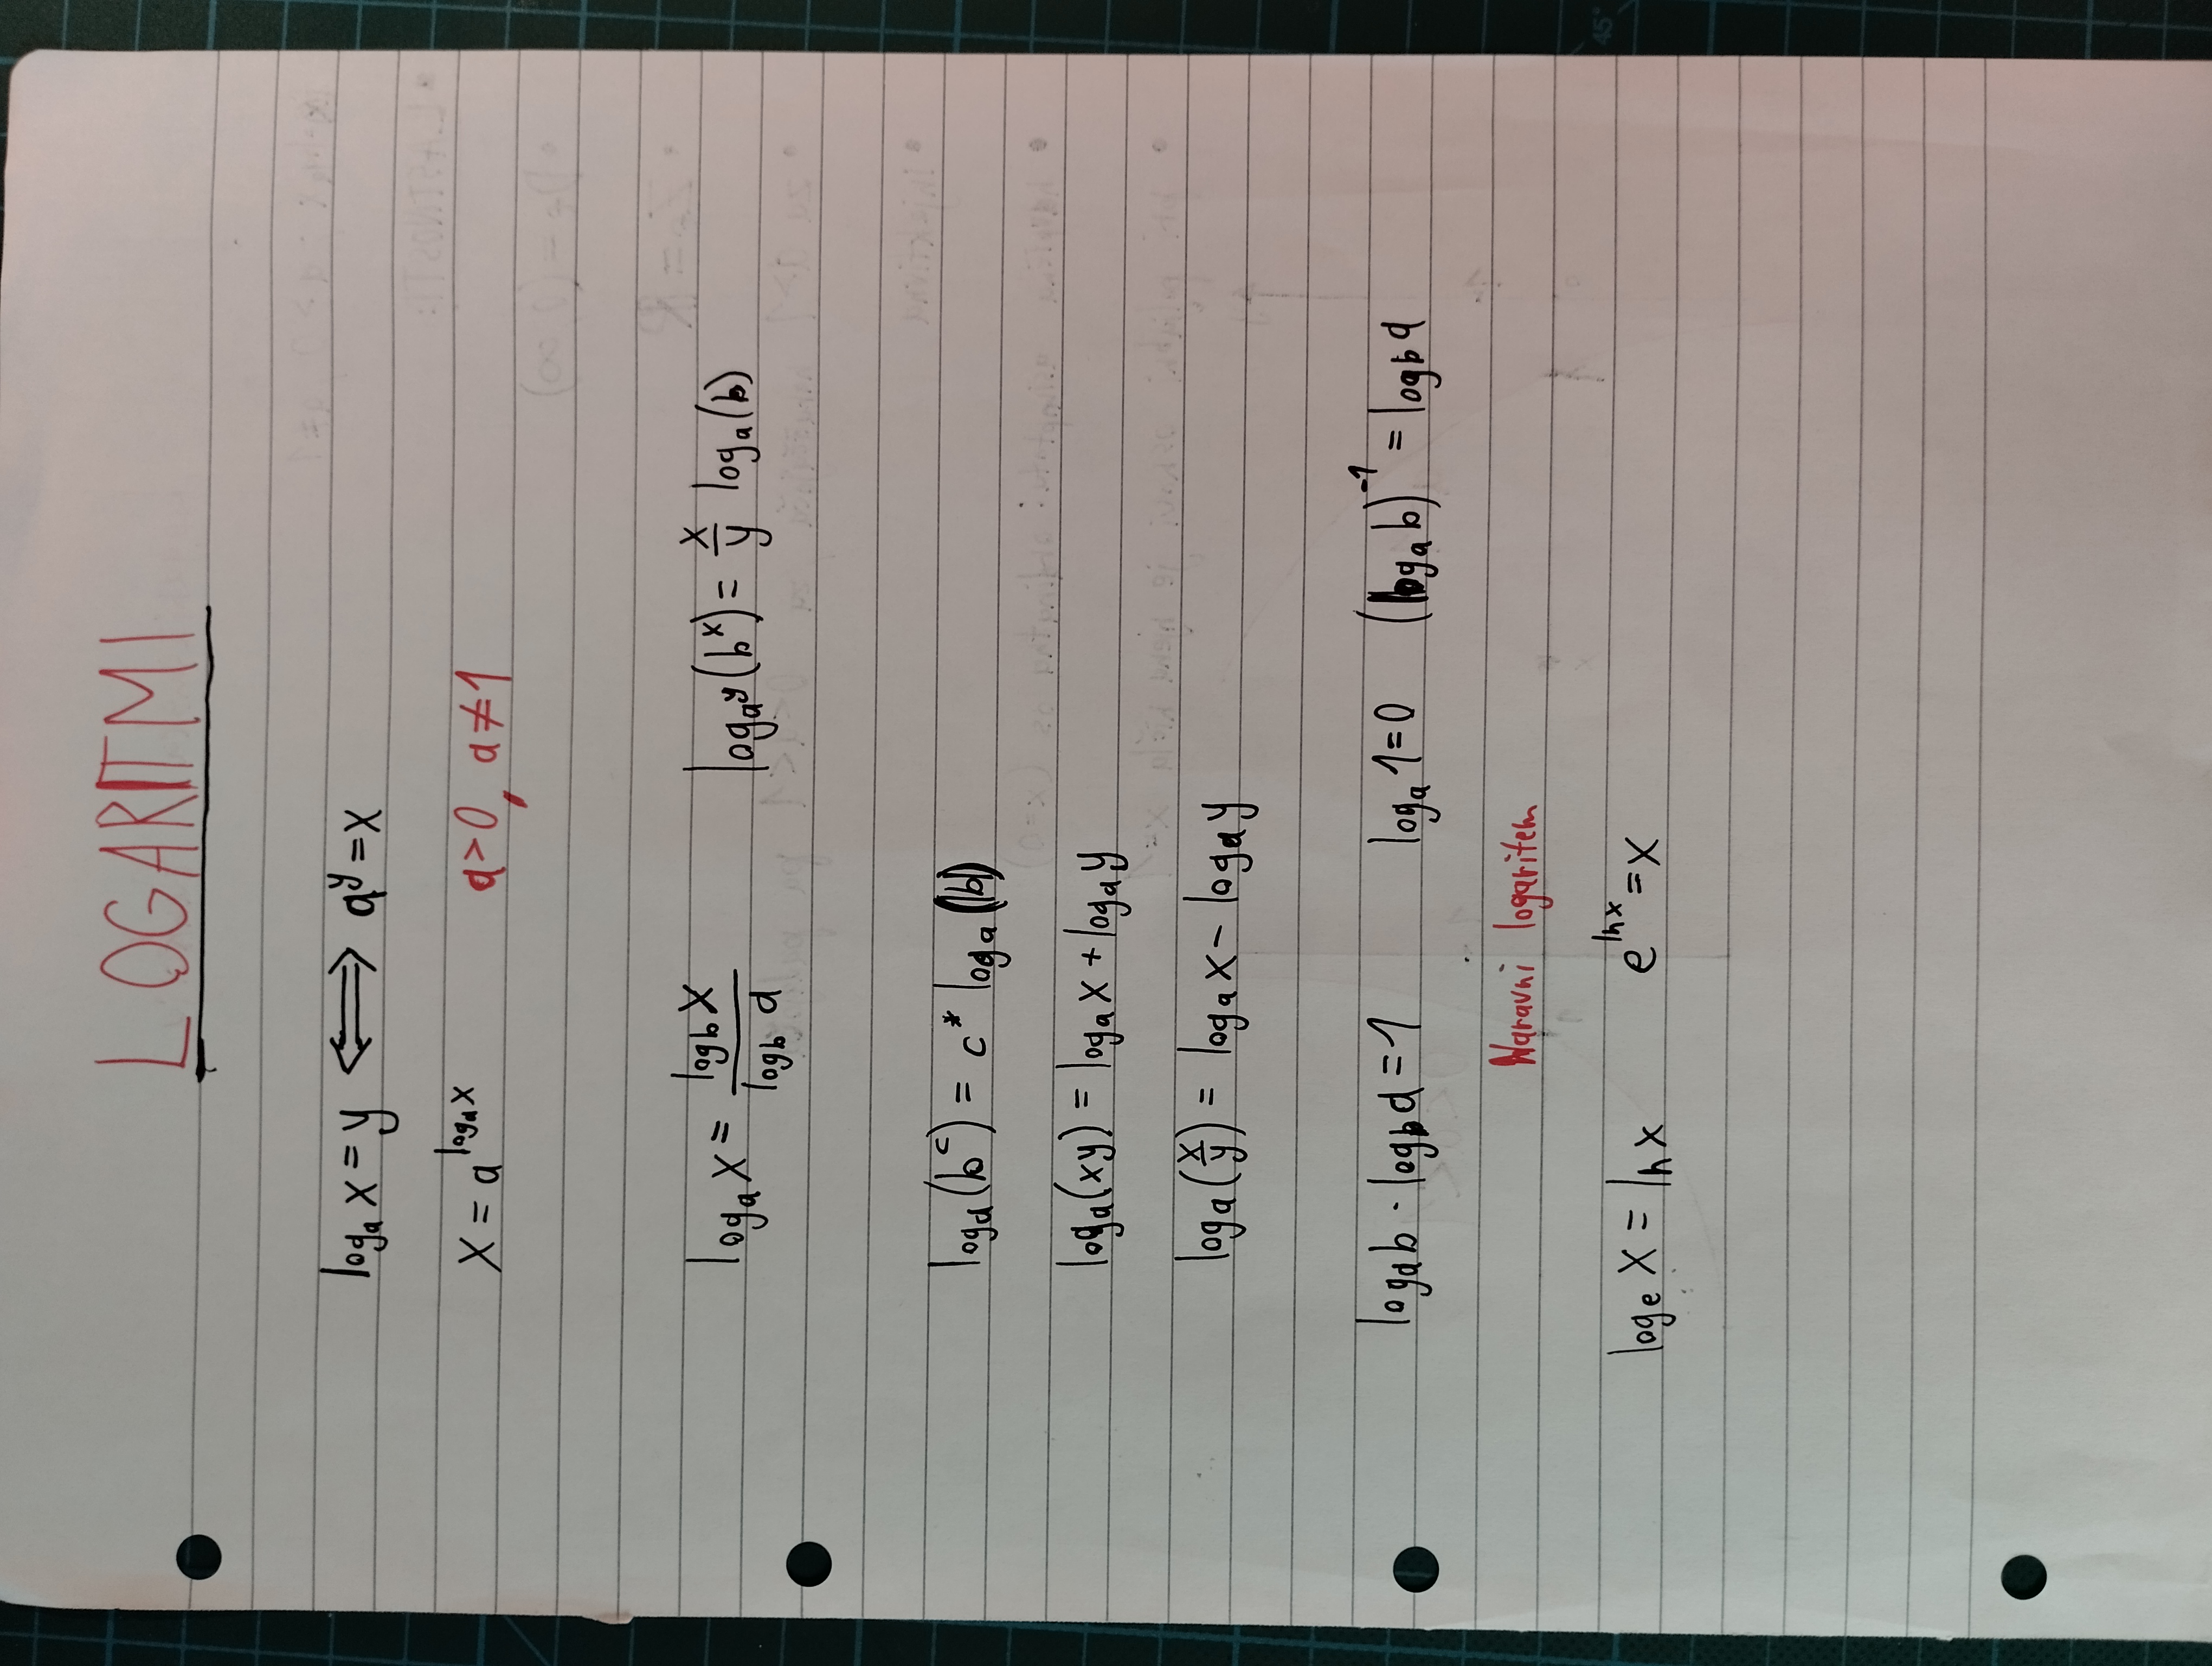 LOGARITMI
logₐ x = y ⟺ a^y = x
x = a^(logₐ x) a > 0, a ≠ 1
logₐ x = (log_b x)/(log_b a) log_(a^y) (b^x) = x/y logₐ(b)
logₐ(b^c) = c * logₐ(b)
logₐ(xy) = logₐ x + logₐ y
logₐ(x/y) = logₐ x − logₐ y
logₐ b · log_b a = 1 logₐ 1 = 0 (logₐ b)^(-1) = log_b a
Naravni logaritem
log_e x = ln x e^(ln x) = x
45°